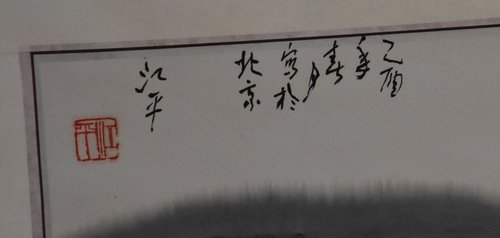 乙酉
年
春
月
寫於
北京
江平